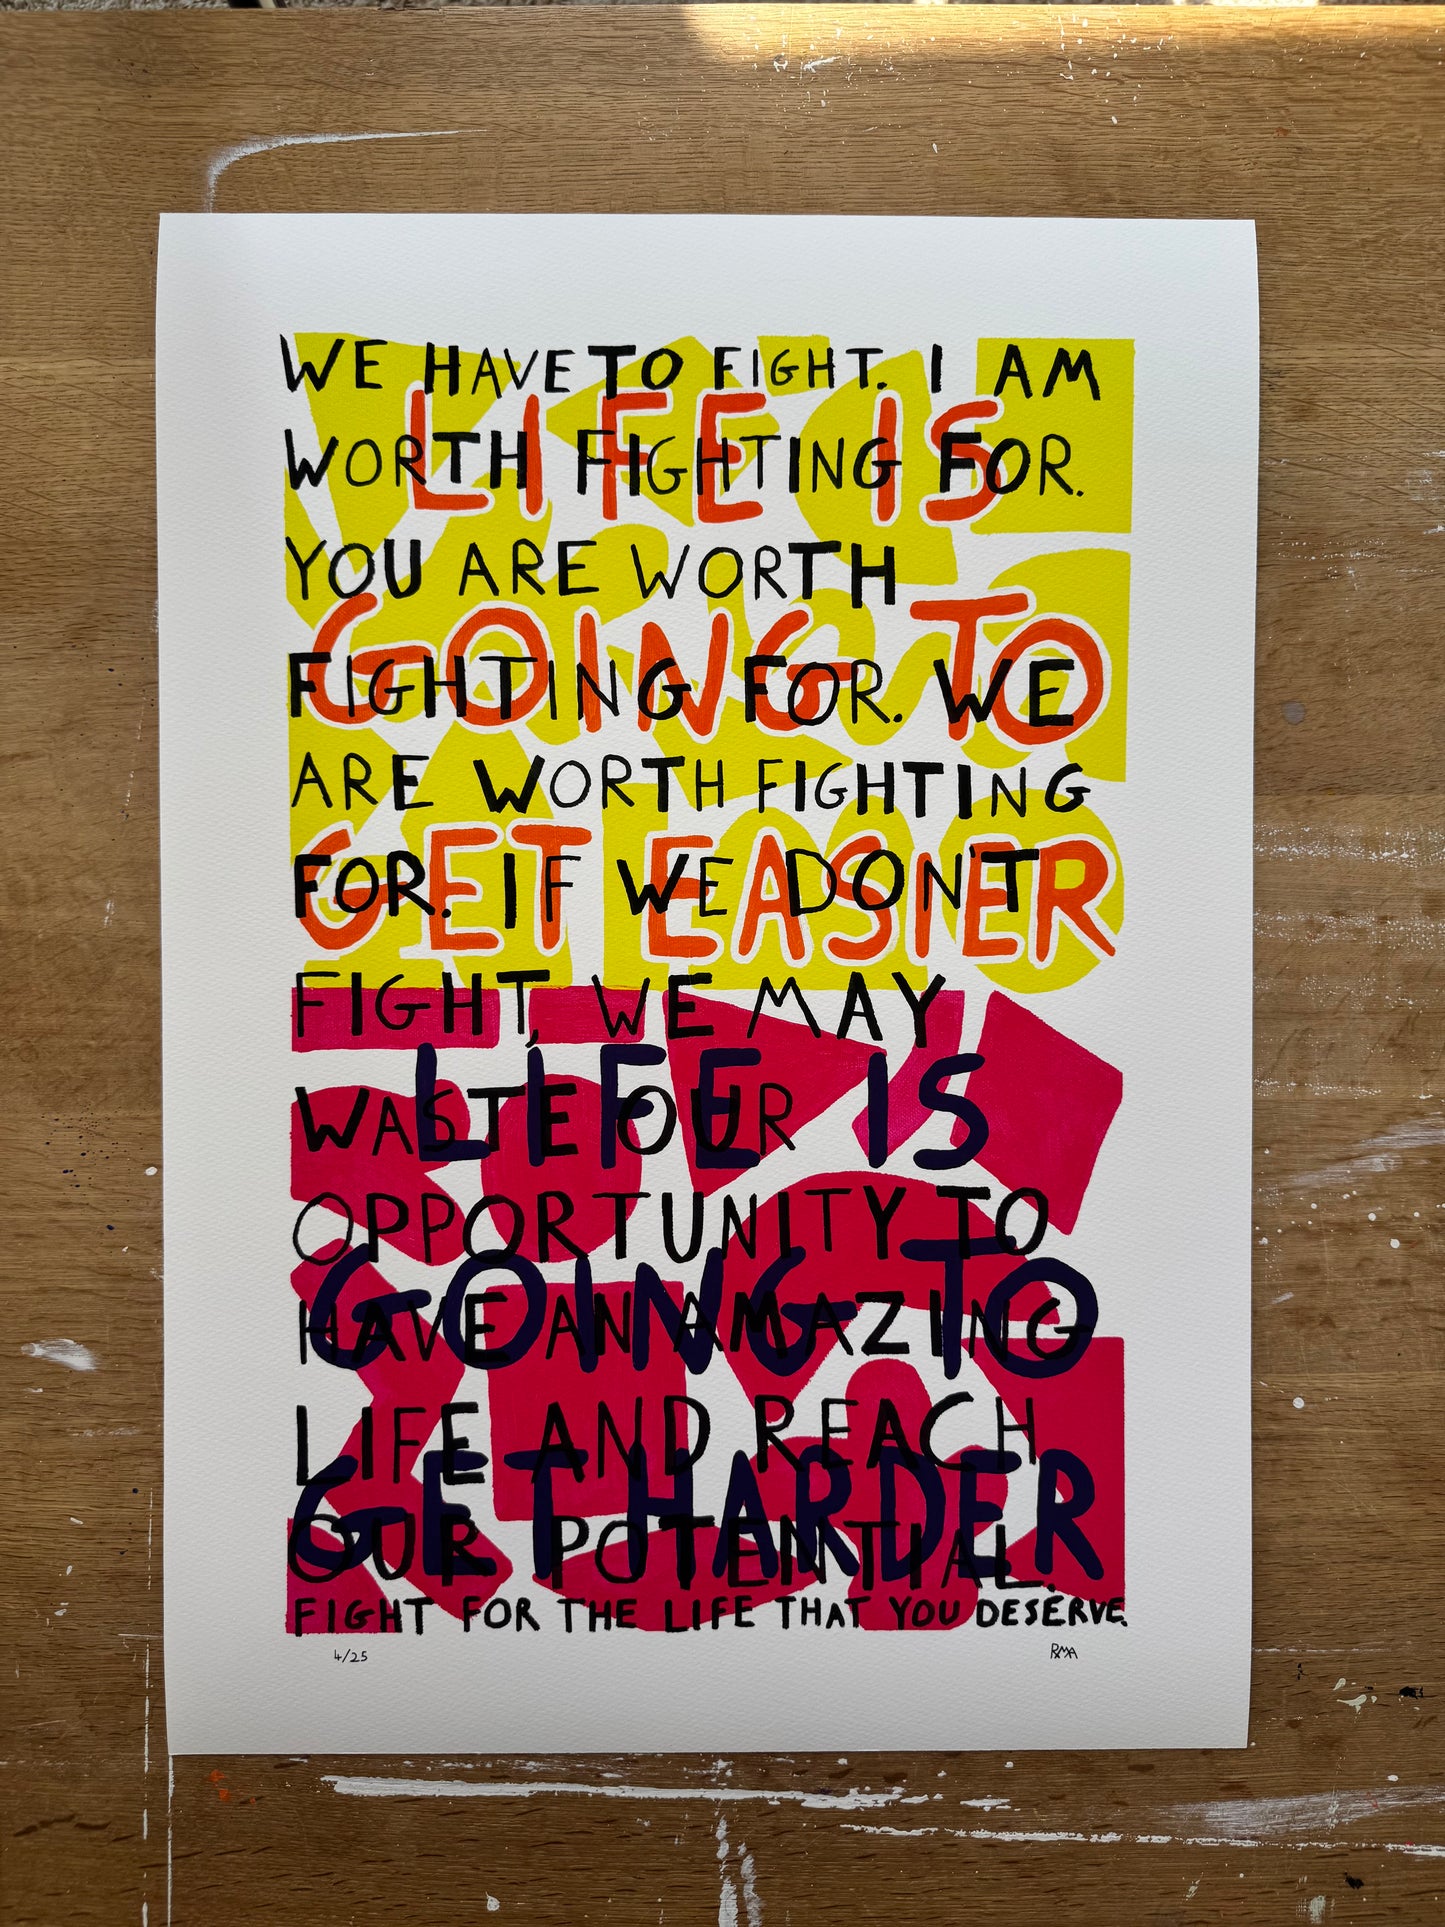 WE HAVE TO FIGHT. I AM
LIFE IS
WORTH FIGHTING FOR.
YOU ARE WORTH
GOING TO
FIGHTING FOR. WE
ARE WORTH FIGHTING
GET EASIER
FOR. IF WE DON'T
FIGHT, WE MAY
LIFE IS
WASTE OUR
OPPORTUNITY TO
GOING TO
HAVE AN AMAZING
LIFE AND REACH
GET HARDER
OUR POTENTIAL.
FIGHT FOR THE LIFE THAT YOU DESERVE.
4/25
RMA